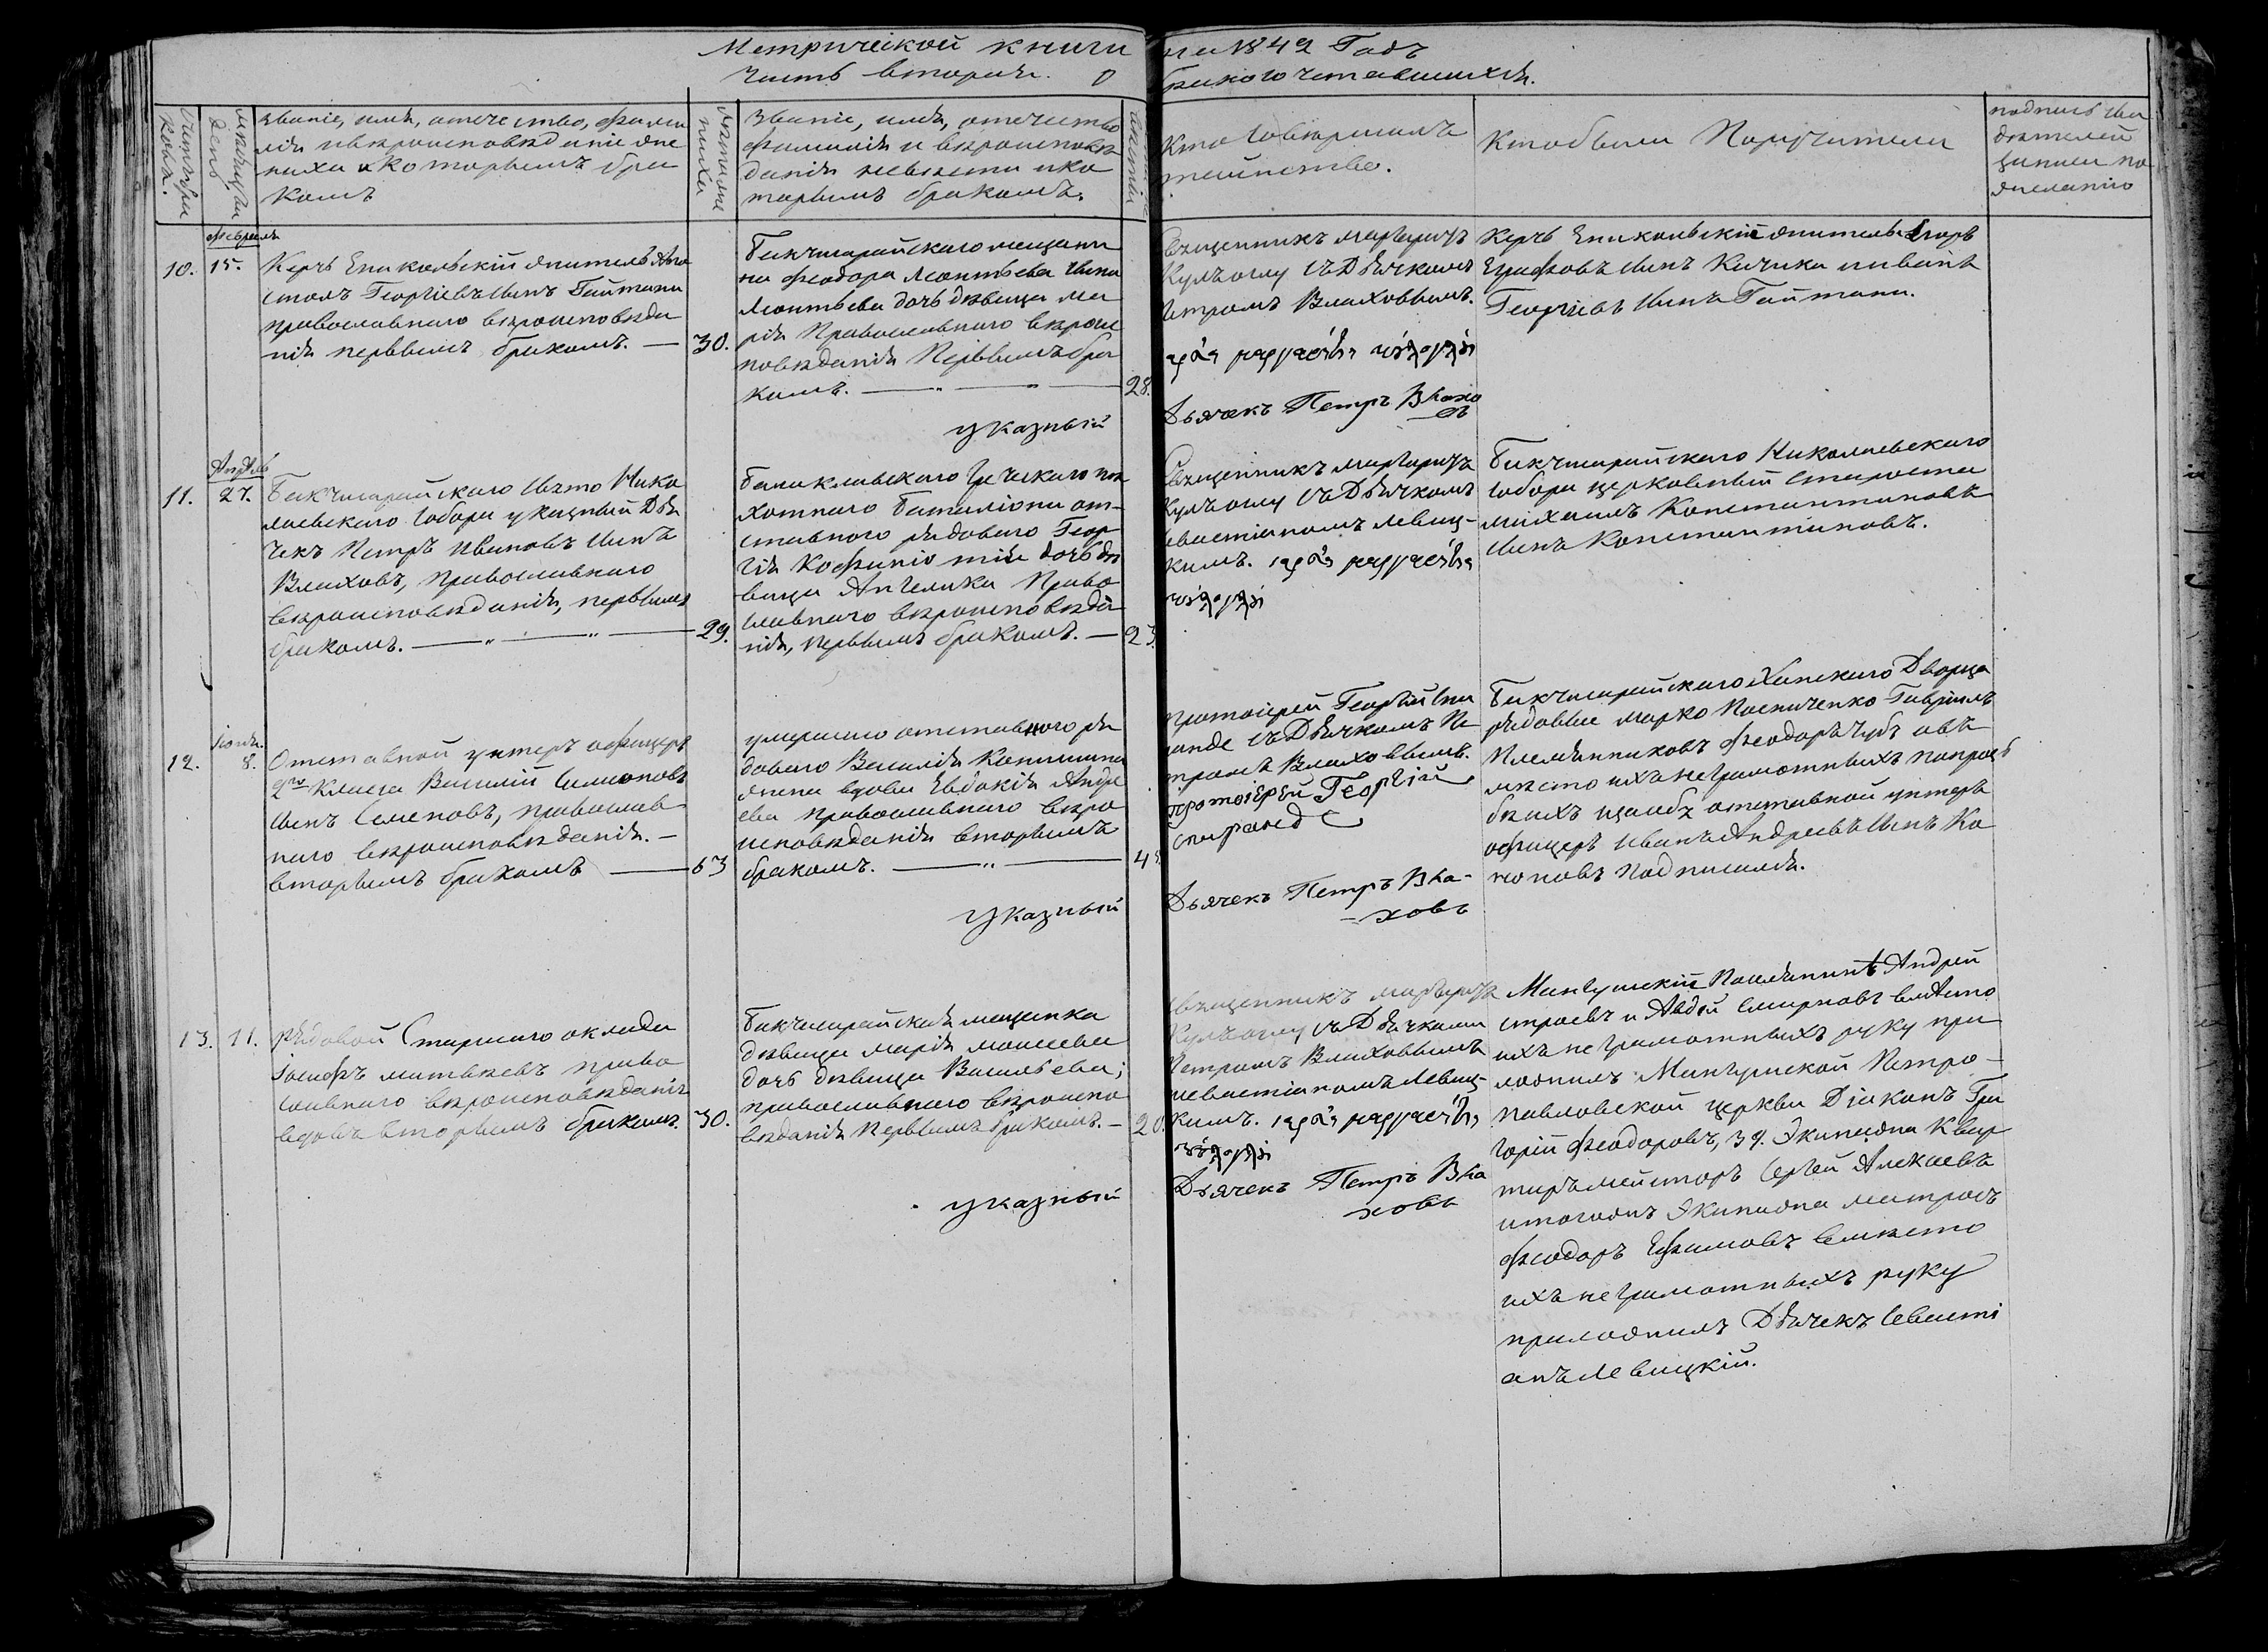 Метрической книги
на 1842 Годъ
часть вторая. О
бракосочетавшихся.
Счетъ бра
ковъ.
мѣсяцъ и
день
Званіе, имя, отечество, фами
лія и вѣроисповѣданіе же
ниха и которымъ бра
комъ
лѣта же
ниха
Званіе, имя, отечество
фамилія и вѣроисповѣ
даніе невѣсты и ко
торымъ бракомъ.
Кто совершалъ
таинство.
Кто были Поручители
подпись сви
дѣтелей
записи по
желанію
февраль
10. 15.
Керчь Еникольскій житель Апо
столъ Георгіевъ сынъ Гайтани
православнаго вѣроисповѣда
нія первымъ бракомъ. — 30.
Бакчисарайскаго мещани
на Феодора Леонтьева сына
Леонтьева дочь девица Ма
рія Православнаго вѣроис
повѣданія Первымъ бра
комъ. — 28.
указный
Священникъ Маргаритъ
Кулъоглу съ Дьячкомъ
Петромъ Влаховымъ.
Дьячекъ Петръ Влахо
въ
Керчь Еникольскій житель Егоръ
Георгіевъ сынъ Гайтани.
Апрѣль
11. 27.
Бакчисарайскаго Свято Нико
лаевскаго Собора указный Дья
чекъ Петръ Ивановъ сынъ
Влаховъ, православнаго
вѣроисповѣданія, первымъ
бракомъ. — 29.
Балаклавскаго Греческаго пѣ
хотнаго Баталіона от-
ставнаго рядоваго Геор
гія дочь дѣ
вица Ангелика Право
славнаго вѣроисповѣда
нія, первымъ бракомъ. — 23.
Священникъ Маргаритъ
Кулъоглу съ Дьячкомъ
Севастіаномъ Левиц-
кимъ.
Бакчисарайскаго Николаевскаго
Собора церковный Староста
Михаилъ Константиновъ
сынъ Константиновъ.
Іюнь.
12. 8.
Отставной унтеръ офицеръ
2го Класса Василій Симеоновъ
сынъ Семеновъ, православ
наго вѣроисповѣданія. —
вторымъ бракомъ — 63
умершаго отставного ря
доваго Василія
жена вдова Евдокія Андре
ева православнаго вѣро
исповѣданія вторымъ
бракомъ. —
указный
Протоіерей Георгій Спи
ранде съ Дьячкомъ Пе
тромъ Влаховымъ.
Протоіерей Георгій
Спиранде
Дьячекъ Петръ Вла-
ховъ
Бакчисарайскаго Ханскаго Дворца
рядовые Марко Гавріилъ
Племянниковъ Феодоръ
мѣсто ихъ неграмотныхъ
отставной унтеръ
офицеръ Иванъ Андреевъ сынъ Ко
ноновъ Подписался.
13. 11.
Рядовой Старшаго оклада
Іосифъ Матвѣевъ право
славнаго вѣроисповѣданія
вдовъ вторымъ бракомъ. 30.
Бакчисарайская мещанка
девица Марія Моисеева
дочь девица Васильева;
православнаго вѣроиспо
вѣданія Первымъ бракомъ. — 20.
указный
Священникъ Маргаритъ
Кулъоглу съ Дьячками
Петромъ Влаховымъ
Севастіаномъ Левиц-
кимъ.
Дьячекъ Петръ Вла
ховъ
Мангушскій Поселянинъ Андрей
и Авдей Смирновъ вмѣсто
ихъ неграмотныхъ руку при
ложилъ Мангушской Петро-
павловской церкви Діаконъ Гри
горій Феодоровъ, 39. Экипажа Квар
тирмейстеръ Сергей Алексеевъ
и того жъ Экипажа матросъ
Феодоръ Ефимовъ вмѣсто
ихъ неграмотныхъ руку
приложилъ Дьячекъ Севасті
анъ Левицкій.